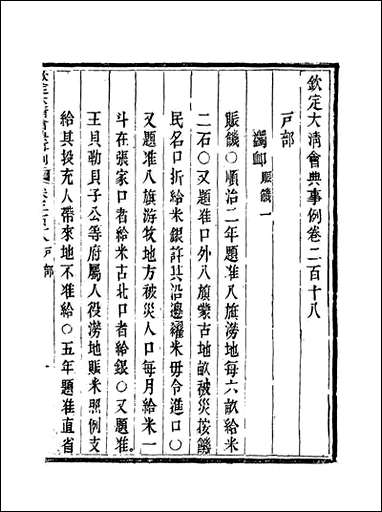 欽定大清會典事例卷二百十八
戶部
蠲卹 賑饑一
賑饑○順治二年題准八旗澇地每六畝給米
二石○又題准口外八旗蒙古地畝被災按饑
民名口折給米銀許其沿邊糴米毋令進口○
又題准八旗游牧地方被災人口每月給米一
斗在張家口者給米古北口者給銀○又題准
王貝勒貝子公等府屬人役澇地賑米照例支
給其投充人帶來地不准給○五年題准直省
戶部
一